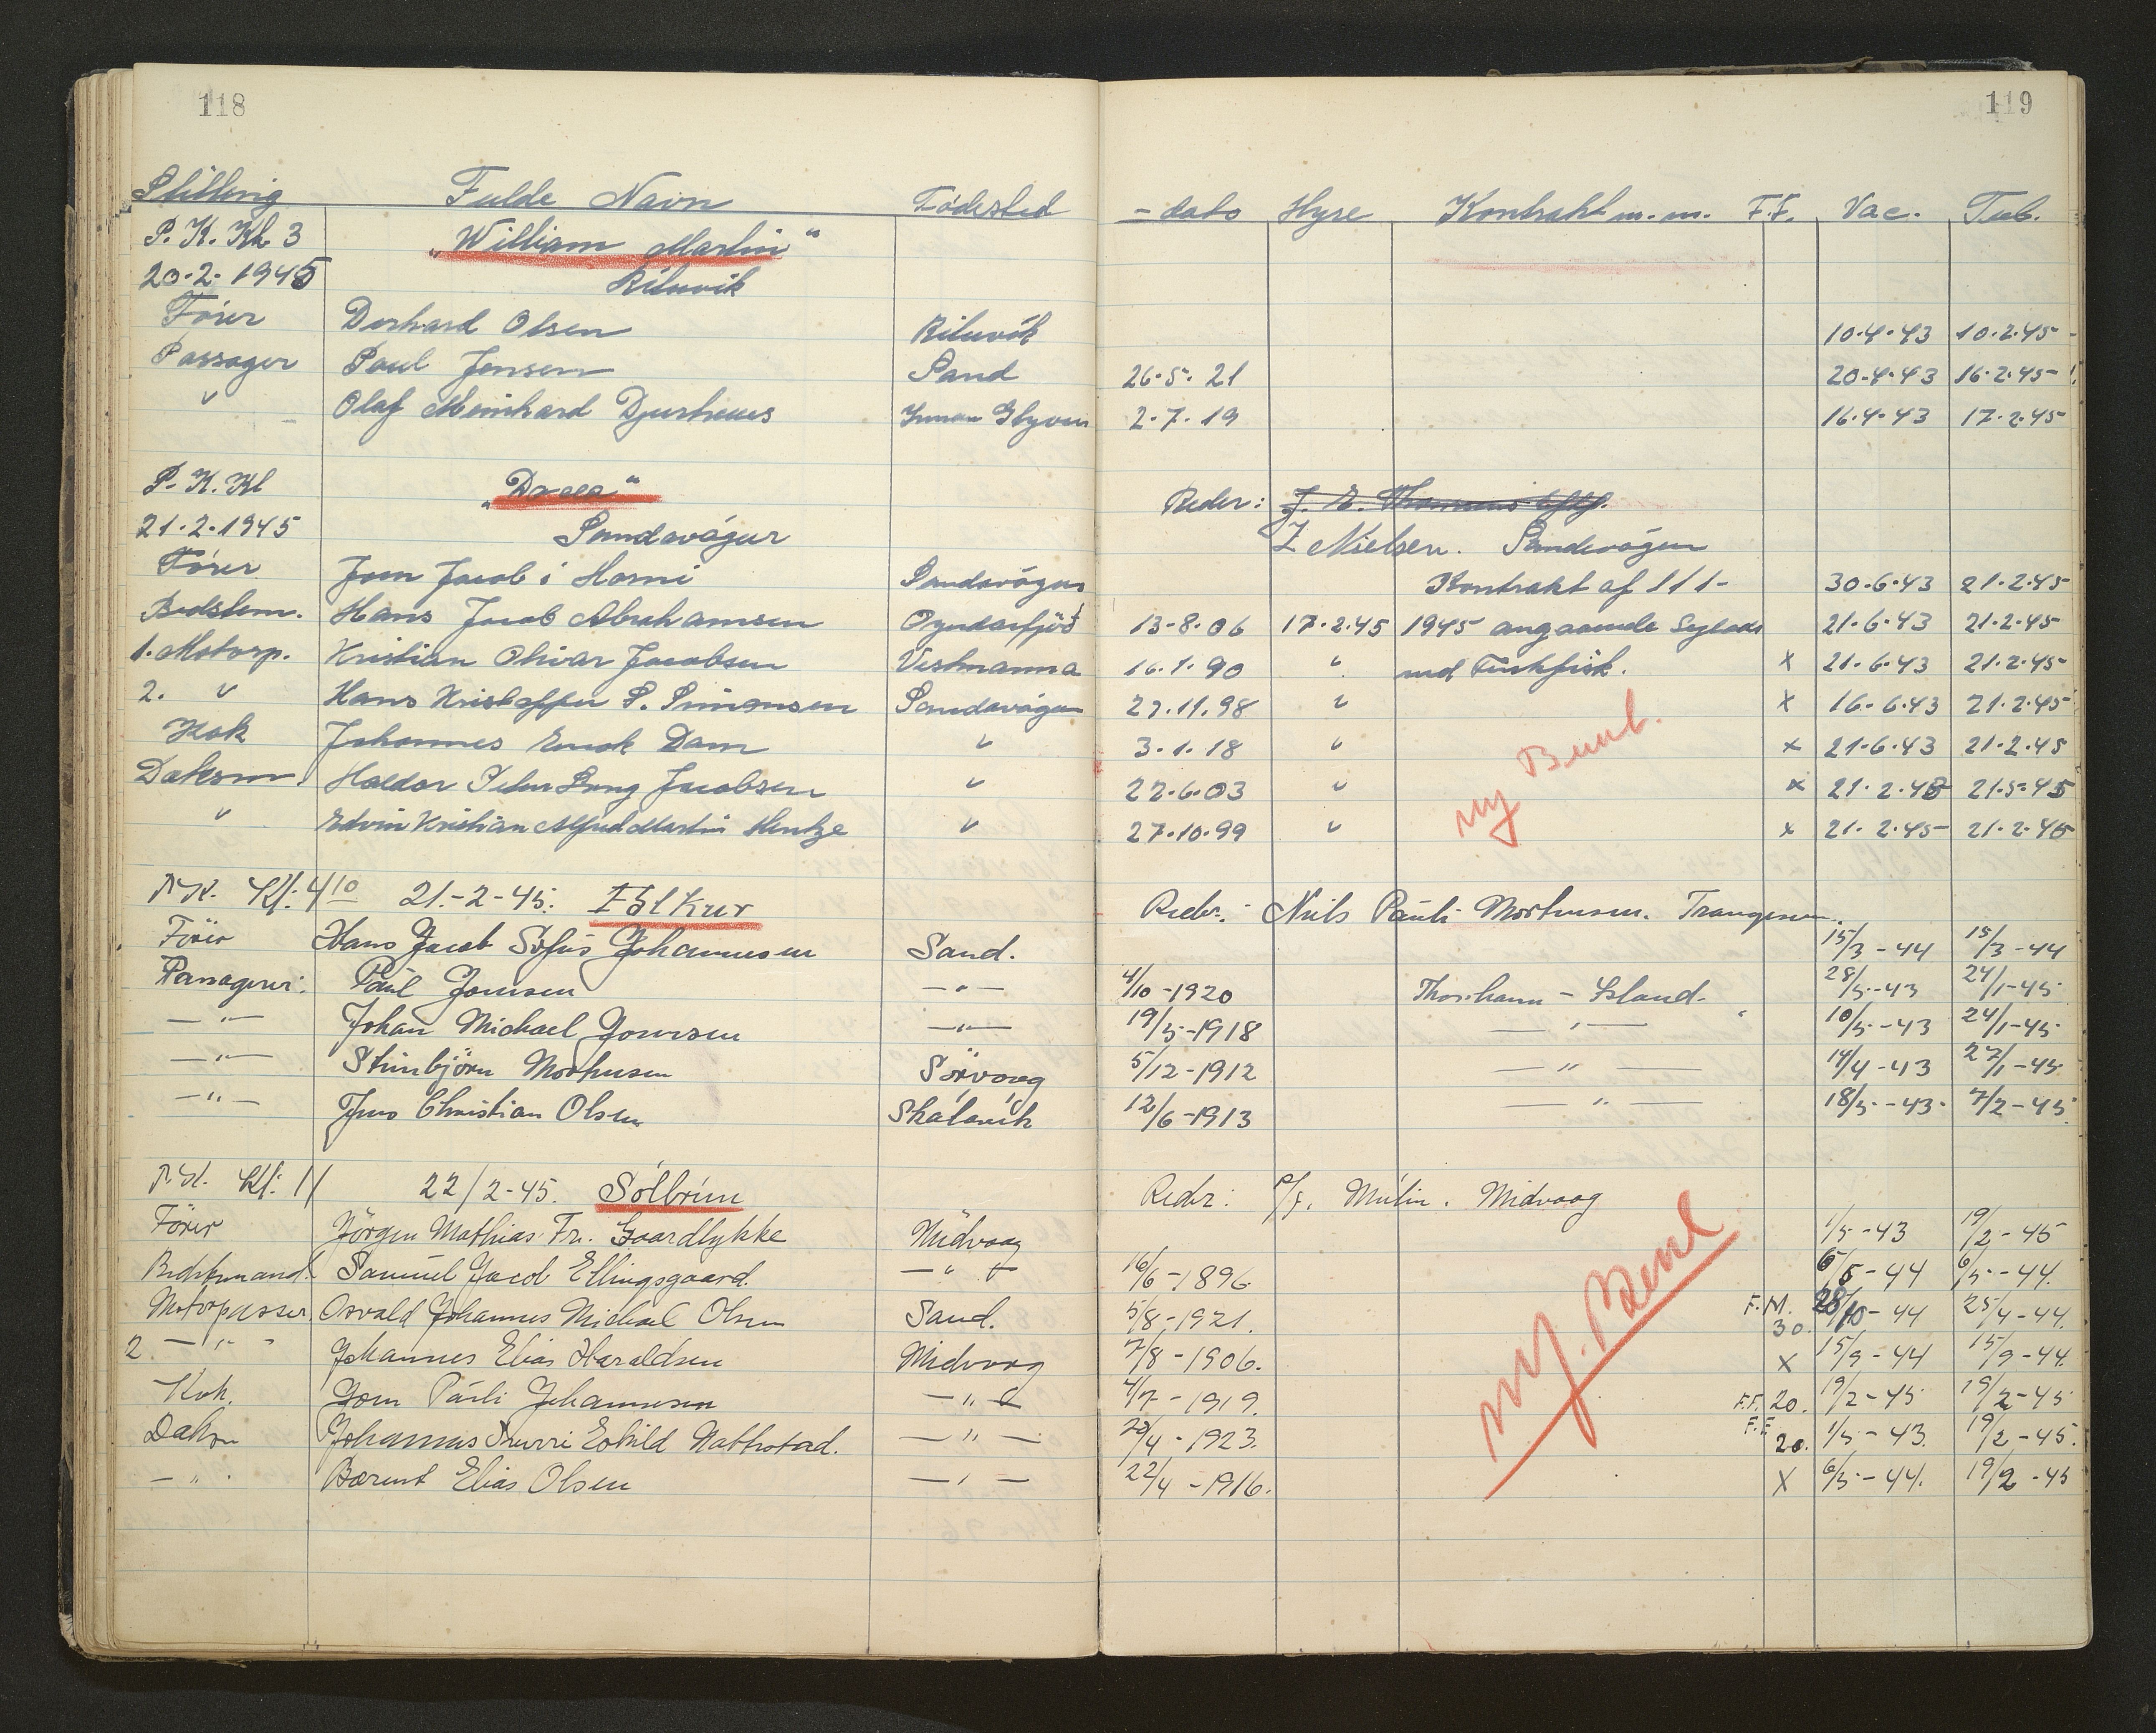 118
119
Stilling Fulde Navn Fødested - dato Hyre Kontrakt m. m. F.F. Vac. Tub.
P. K. Kl. 3 "William Martin"
20-2-1945
Fører Olsen 10.4.43 10.2.45
Passager Paul Jensen Sand 26.5.21 20.4.43 16.2.45
" Olaf Meinhard Djurhuus 2.7.19 16.4.43 17.2.45
P. K. Kl Reder:
21.2.1945 Sandavágur Nielsen. Sandavágur
Fører Jacob í Sandavágur Kontrakt af 11 1- 30.6.43 21.2.45
Bedstem. Hans Jacob Abrahamsen Oyndarfjørð 13-8.06 17.2.45 1945 angaaende 21.6.43 21.2.45
1. Motorp. Kristian Jacobsen Vestmanna 16.1.90 " med Fiskfisk. X 21.6.43 21.2.45
2. " Hans Kristoffer S. Simonsen Sandavágur 27.11.98 " X 16.6.43 21.2.45
Kok Johannes Enok Dam " 3.1.18 " x 21.6.43 21.2.45
Daksm. Haldor Peter Jacobsen " 22.6.03 " x
" Edvin Kristian Alfred Martin Hentze " 27.10.99 " x 21.2.45 21.2.45
ny Bemb.
P.K. Kl: 4 10 21.-2-45: Fálkur Reder: Niels Páuli Mortensen.
Fører Hans Jacob Sofus Johannesen Sand. 15/3-44 15/3-44
Passagerer: Pául Joensen -"- 4/10-1920 Thorshavn - Island. 28/5-43 24/1-45
-"- Johan Michael Joensen -"- 19/5-1918 -"- 10/5-43 24/1-45
-"- Steinbjörn Mortensen Sörvaag 5/12-1912 -"- 14/4-43 27/1-45
-"- Jens Christian Olsen Skálavík 12/6-1913 -"- 18/5-43 7/2-45
P.K. Kl: 11 22/2-45. Sólbrún Reder: P/f. Múlin. Midvaag
Förer Jörgen Mathias Fr. Gaardlykke Midvaag 1/5-43 19/2-45
Bedstemand. Samúel Jacob Ellingsgaard. -"- 16/6-1896 6/5-44 6/5-44.
Motorpasser Osvald Johannes Michael Olsen Sand. 5/8-1921. F.M. 30. 28/10-44 25/4-44.
2 -"- Johannes Elias Haraldsen Midvaag 7/8-1906. X 15/9-44 15/9-44.
Kok. Joen Páuli Johannesen -"- 4/7-1919. F.F. 20. 19/2-45 19/2-45
Daksm Johannes Eskild -"- 23/4-1923. F.F. 20. 1/5-43. 19/2-45.
-"- Berent Elias Olsen -"- 22/4-1916. X 6/5-44. 19/2-45
ny. Beml